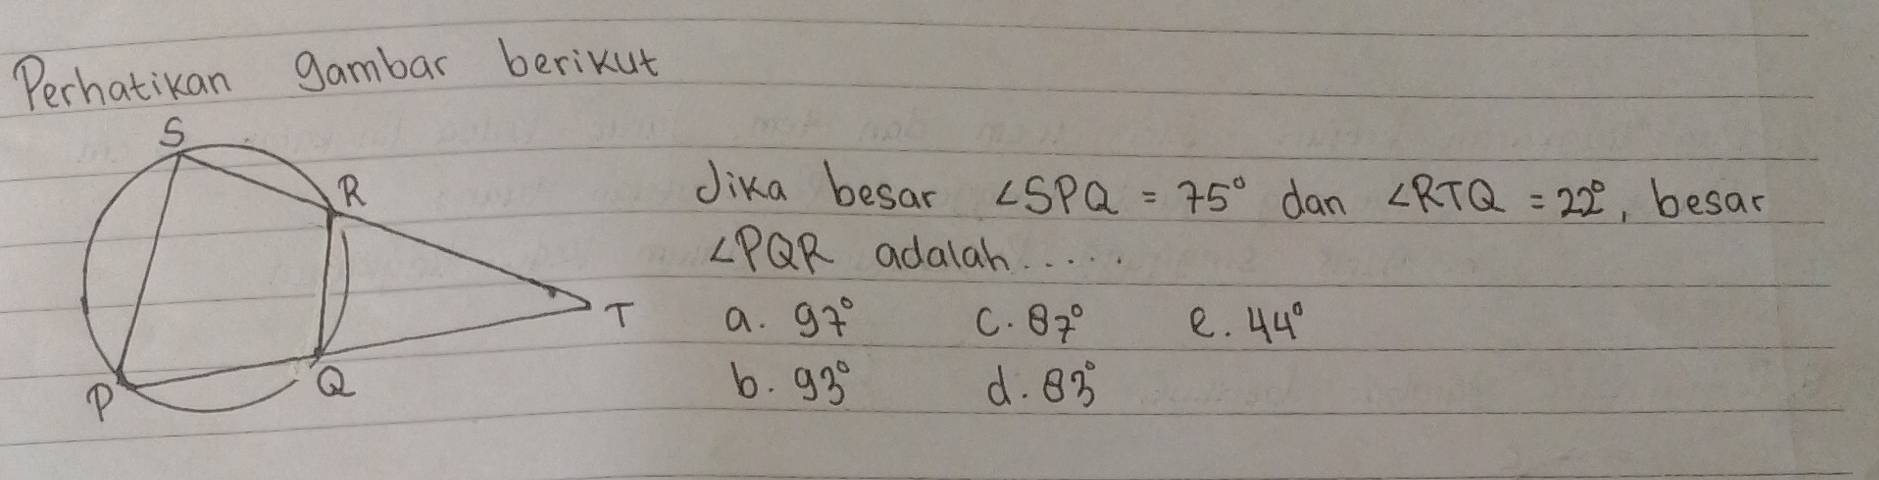 Perhatikan gambar berikut
S
R
T
P
Q
Jika besar ∠SPQ = 75° dan ∠RTQ = 22°, besar
∠PQR adalah.....
a. 97° c. 87° e. 44°
b. 93° d. 83°